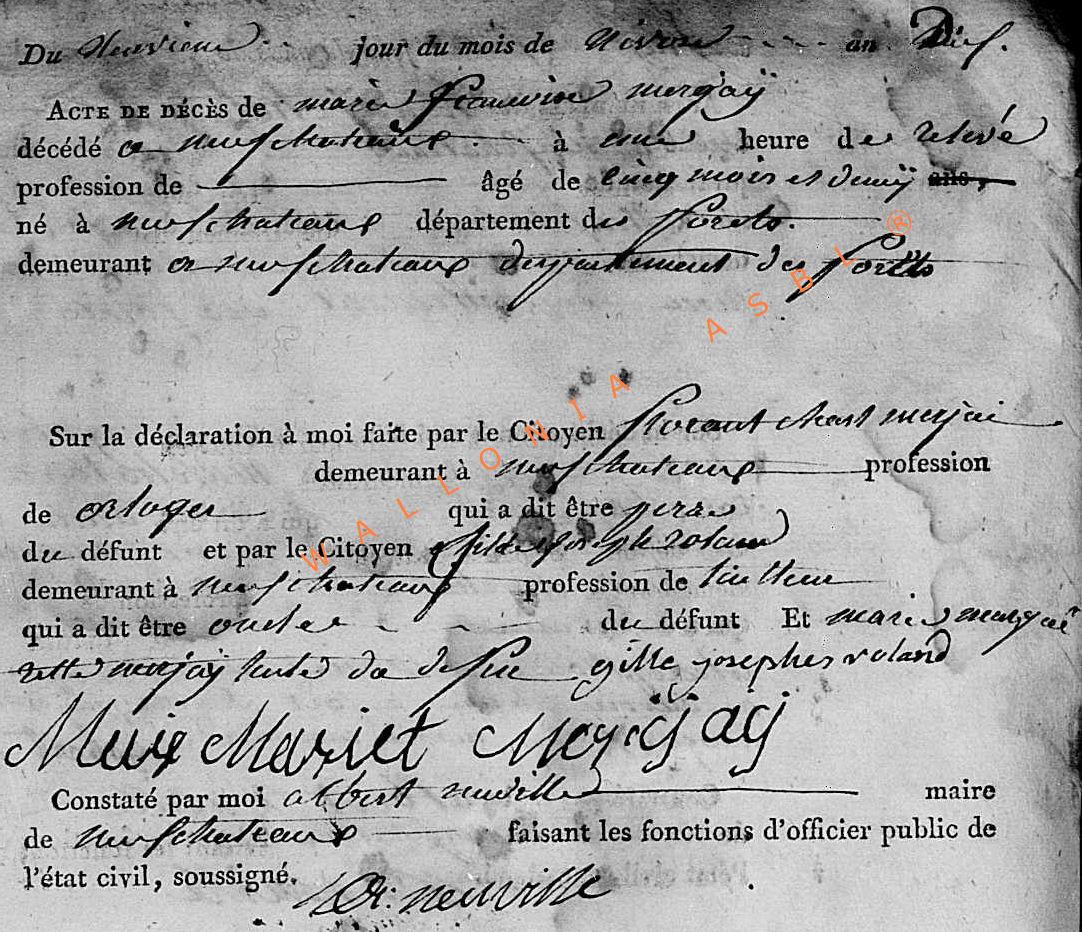 Du Neuvieme jour du mois de Nivose an Dix.
ACTE DE DÉCÈS de marie merjaÿ
décédé a neufchateaux à une heure de relevé
profession de âgé de cinq mois et demÿ ans,
né à neufchateaux département des forets.
demeurant a neufchateaux departement des forets
Sur la déclaration à moi faite par le Citoyen florant merjai
demeurant à neufchateaux profession
de orloger qui a dit être perre
du défunt et par le Citoyen gille joseph roland
demeurant à neufchateaux profession de tailleur
qui a dit être oncle du défunt Et marie
merjaÿ du gille josephes roland
Merjay
Constaté par moi albert neuville maire
de neufchateaux faisant les fonctions d'officier public de
l'état civil, soussigné.
neuville
WALLONIA ASBL ®